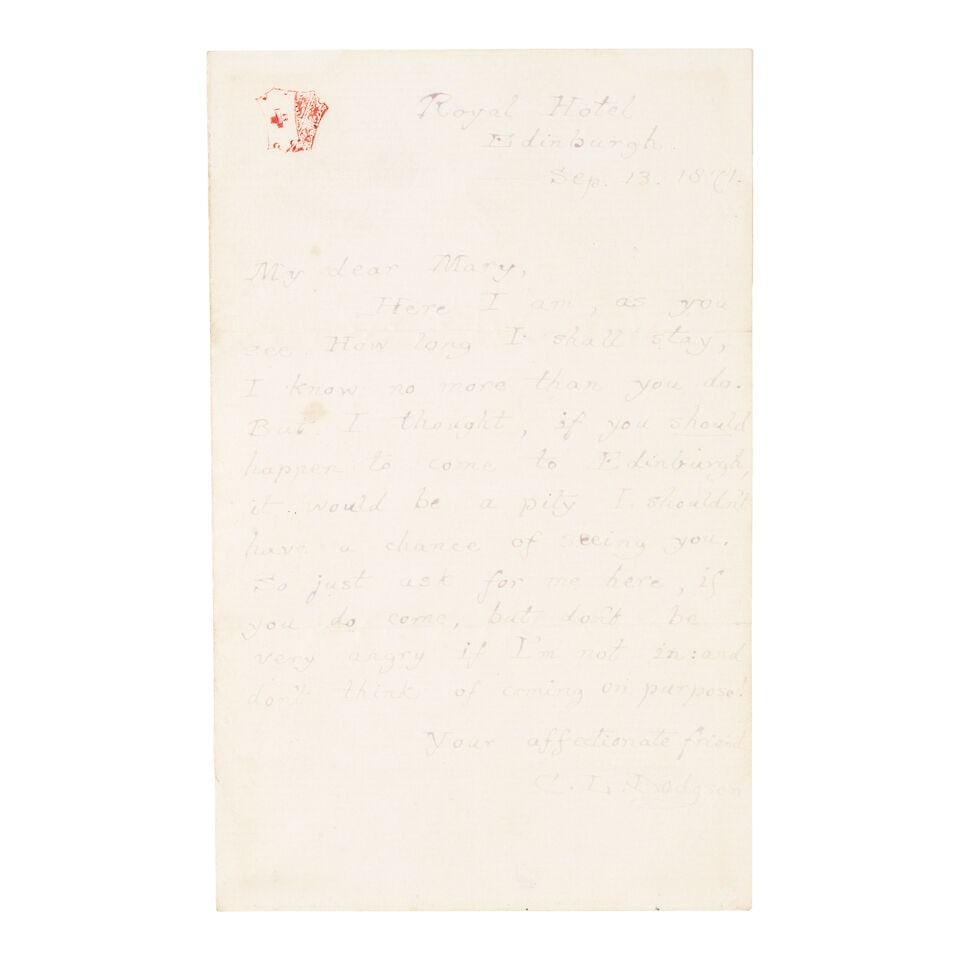 Royal Hotel
Edinburgh.
Sep. 13. 1871.
My dear Mary,
Here I am, as you
see. How long I shall stay,
I know no more than you do.
But I thought, if you should
happen to come to Edinburgh,
it would be a pity I shouldn't
have a chance of seeing you.
So just ask for me here, if
you do come, but don't be
very angry if I'm not in: and
don't think of coming on purpose!
Your affectionate friend
C. L. Dodgson